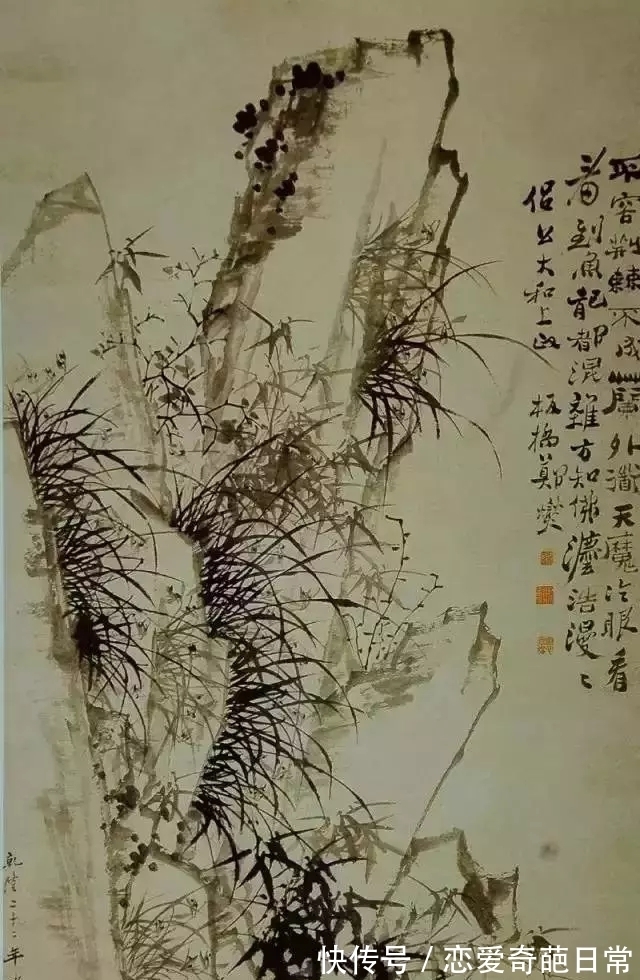 不容荊棘不成蘭外道天魔冷眼看
看到魚龍都混雜方知佛灋浩漫〻
侶公大和上政 板橋鄭燮
乾隆二十二年
快传号 / 恋爱奇葩日常